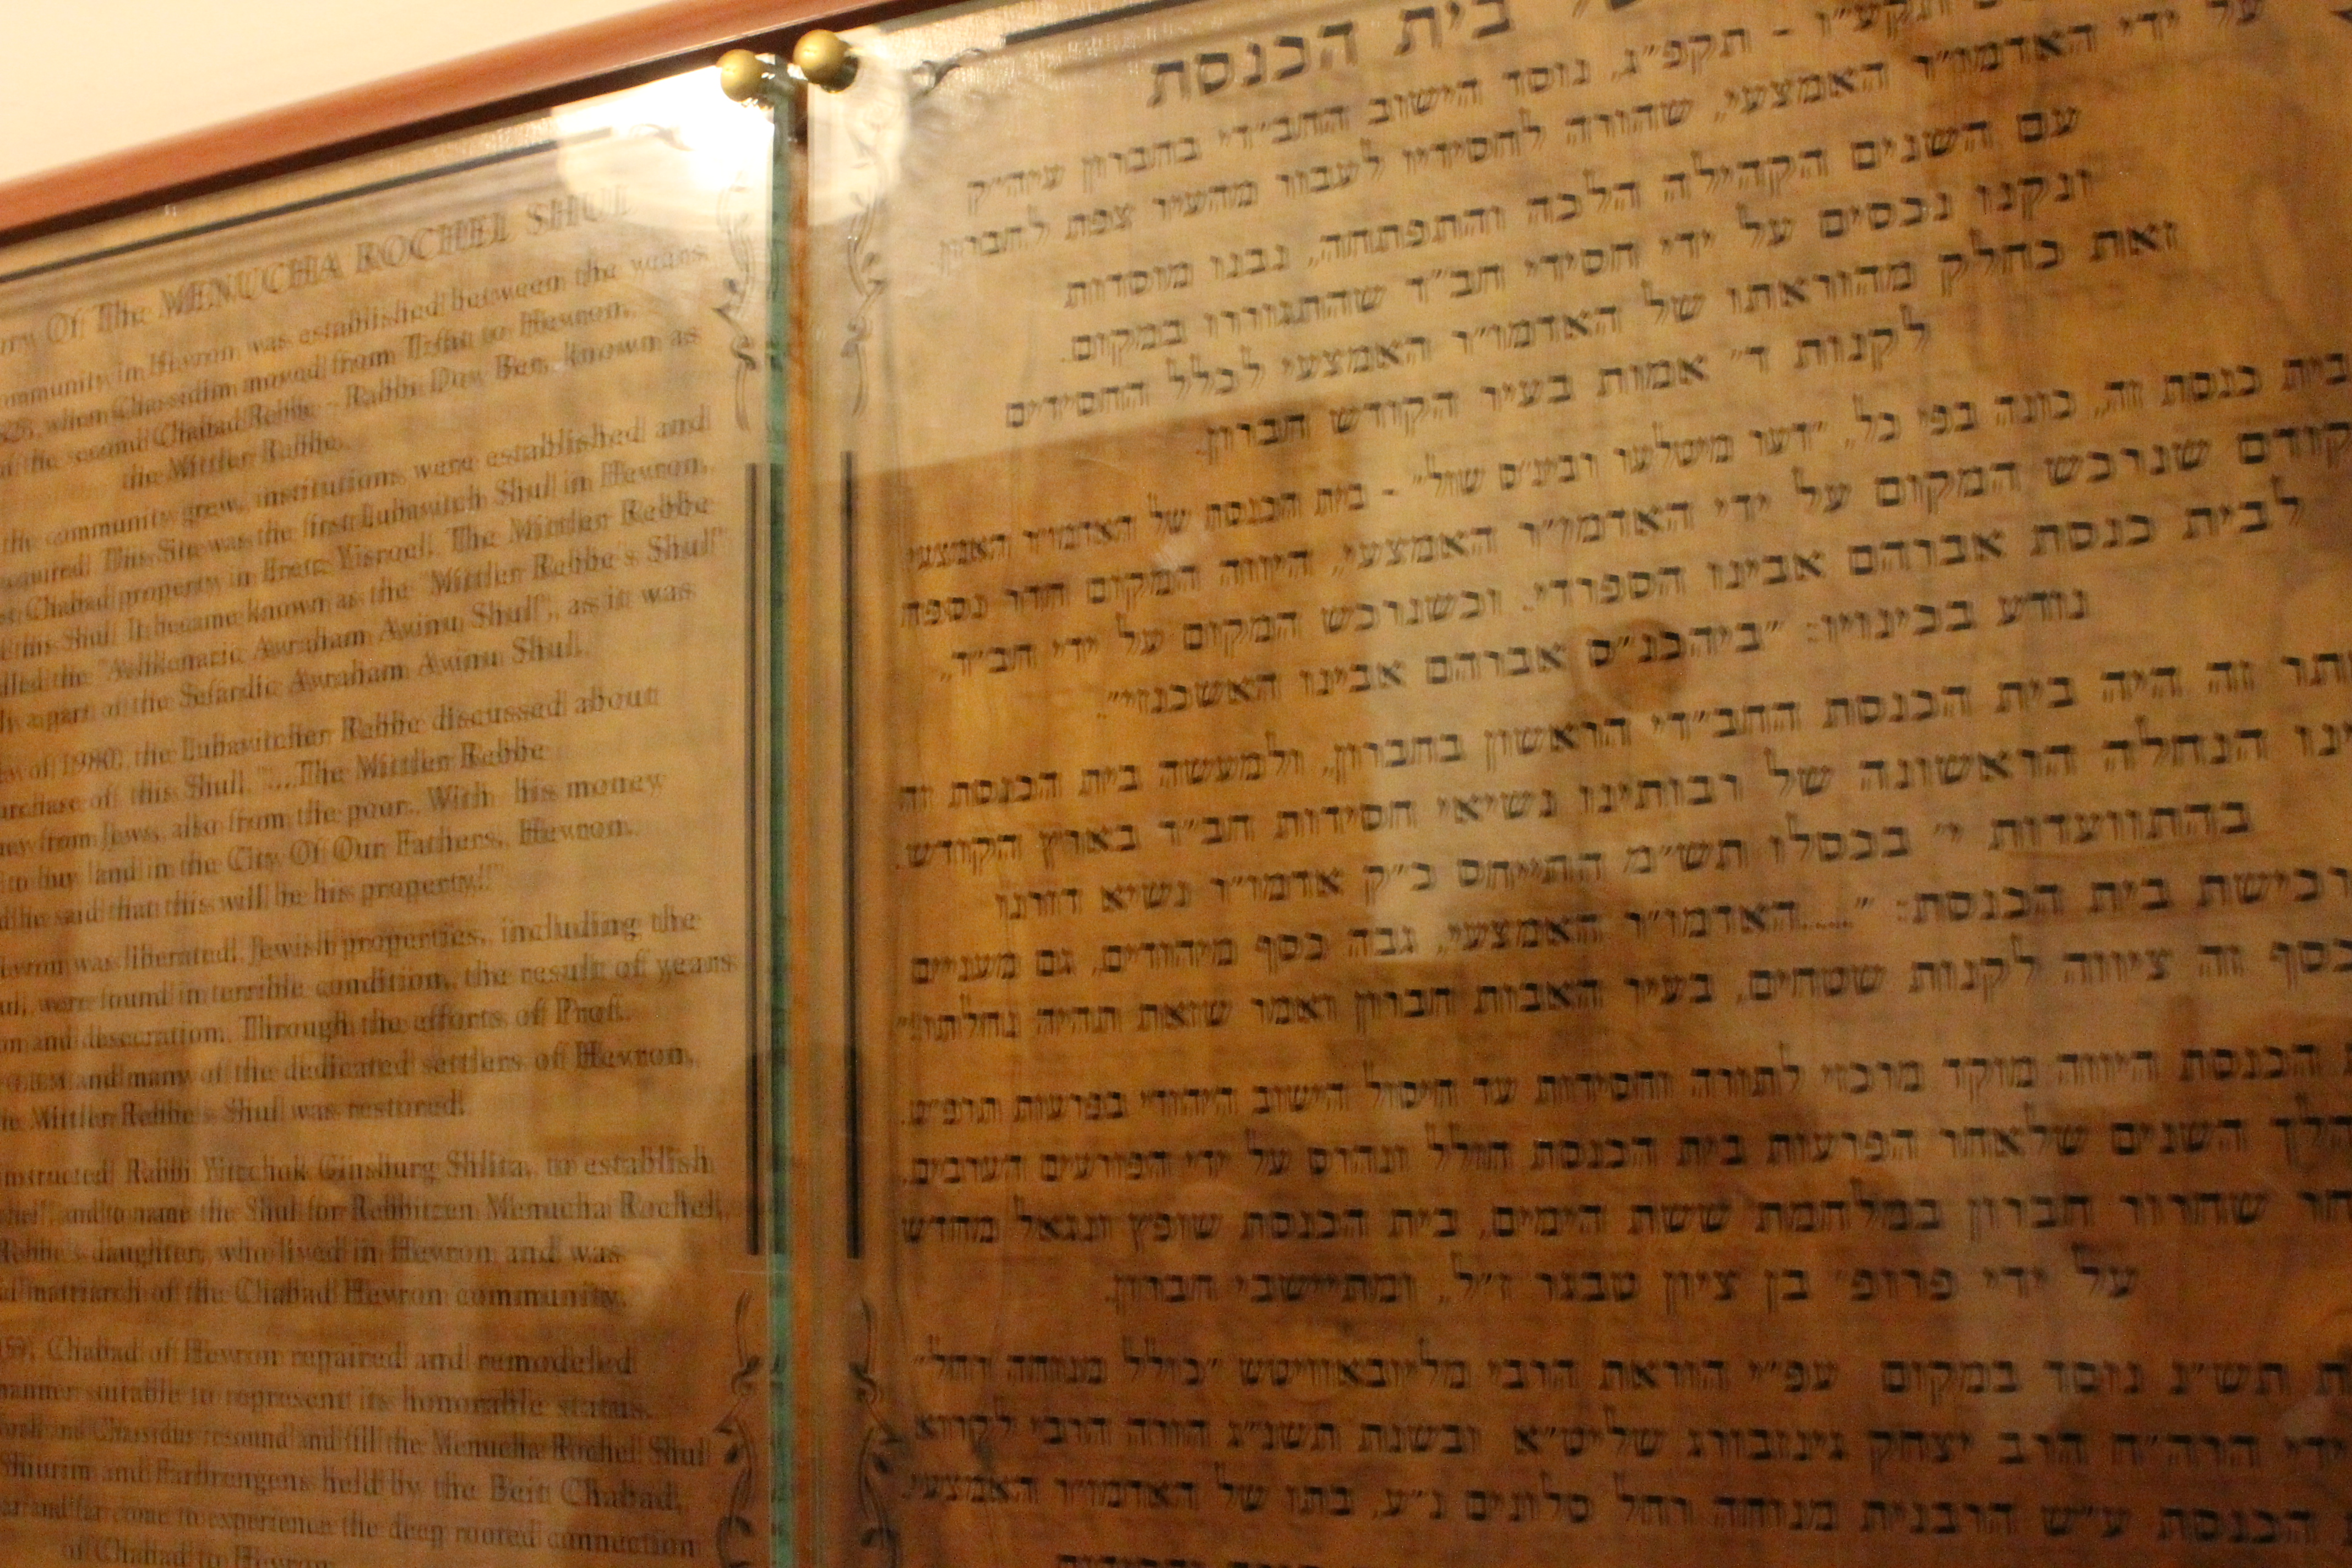 Of The MENUCHA ROCHEL SHUL
community in Hevron was established between the years
when Chassidim moved from Tzfat to Hevron,
the second Chabad Rebbe - Rabbi Dov Ber, known as
the Mittler Rebbe.
the community grew, institutions were established and
This Site was the first Lubavitch Shul in Hevron,
Chabad property in Eretz Yisrael. The Mittler Rebbe
this Shul. It became known as the "Mittler Rebbe's Shul"
the "Ashkenazic Avraham Avinu Shul", as it was
a part of the Sefardic Avraham Avinu Shul.
of 1980, the Lubavitcher Rebbe discussed about
of this Shul. "...The Mittler Rebbe
from Jews, also from the poor. With his money
to buy land in the City Of Our Fathers, Hevron.
he said that this will be his property!"
was liberated, Jewish properties, including the
were found in terrible condition, the result of years
and desecration. Through the efforts of Prof.
and many of the dedicated settlers of Hevron,
Mittler Rebbe's Shul was restored.
Rabbi Yitzchok Ginsburg Shlita, to establish
and to name the Shul for Rebbitzen Menucha Rochel,
daughter, who lived in Hevron and was
matriarch of the Chabad Hevron community.
Chabad of Hevron repaired and remodeled
manner suitable to represent its honorable status.
and Chassidus resound and fill the Menucha Rochel Shul
Shiurim and Farbrengens held by the Beit Chabad,
and far come to experience the deep rooted connection
of Chabad to Hevron.
בית הכנסת
- תקפ"ג, נוסד הישוב החב"די בחברון עיה"ק
על ידי האדמו"ר האמצעי, שהורה לחסידיו לעבור מהעיר צפת לחברון
עם השנים הקהילה הלכה והתפתחה, נבנו מוסדות
ונקנו נכסים על ידי חסידי חב"ד שהתגוררו במקום.
זאת כחלק מהוראתו של האדמו"ר האמצעי לכלל החסידים
לקנות ד' אמות בעיר הקודש חברון.
בית כנסת זה, כונה בפי כל, - בית הכנסת של האדמו"ר האמצעי
קודם שנרכש המקום על ידי האדמו"ר האמצעי, היווה המקום חדר נספח
לבית כנסת אברהם אבינו הספרדי. וכשנרכש המקום על ידי חב"ד,
נודע בכינויו: "ביהכנ"ס אברהם אבינו האשכנזי".
זה היה בית הכנסת החב"די הראשון בחברון, ולמעשה בית הכנסת זה
הנחלה הראשונה של רבותינו נשיאי חסידות חב"ד בארץ הקודש.
בהתוועדות י' בכסלו תש"מ התייחס כ"ק אדמו"ר נשיא דורנו
רכישת בית הכנסת: "....האדמו"ר האמצעי, גבה כסף מיהודים, גם מעניים
כסף זה ציווה לקנות שטחים, בעיר האבות חברון ואמר שזאת תהיה נחלתו!"
הכנסת היווה מוקד מרכזי לתורה וחסידות עד חיסול הישוב היהודי בפרעות תרפ"ט.
השנים שלאחר הפרעות בית הכנסת חולל ונהרס על ידי הפורעים הערבים.
שחרור חברון במלחמת ששת הימים, בית הכנסת שופץ ונגאל מחדש
על ידי פרופ' בן ציון טבגר ז"ל, ומתיישבי חברון.
תש"נ נוסד במקום עפ"י הוראת הרבי מליובאוויטש "כולל מנוחה רחל"
הרה"ח הרב יצחק גינזבורג שליט"א ובשנת תשנ"ג הורה הרבי לקרוא
הכנסת ע"ש הרבנית מנוחה רחל סלונים נ"ע, בתו של האדמו"ר האמצעי,